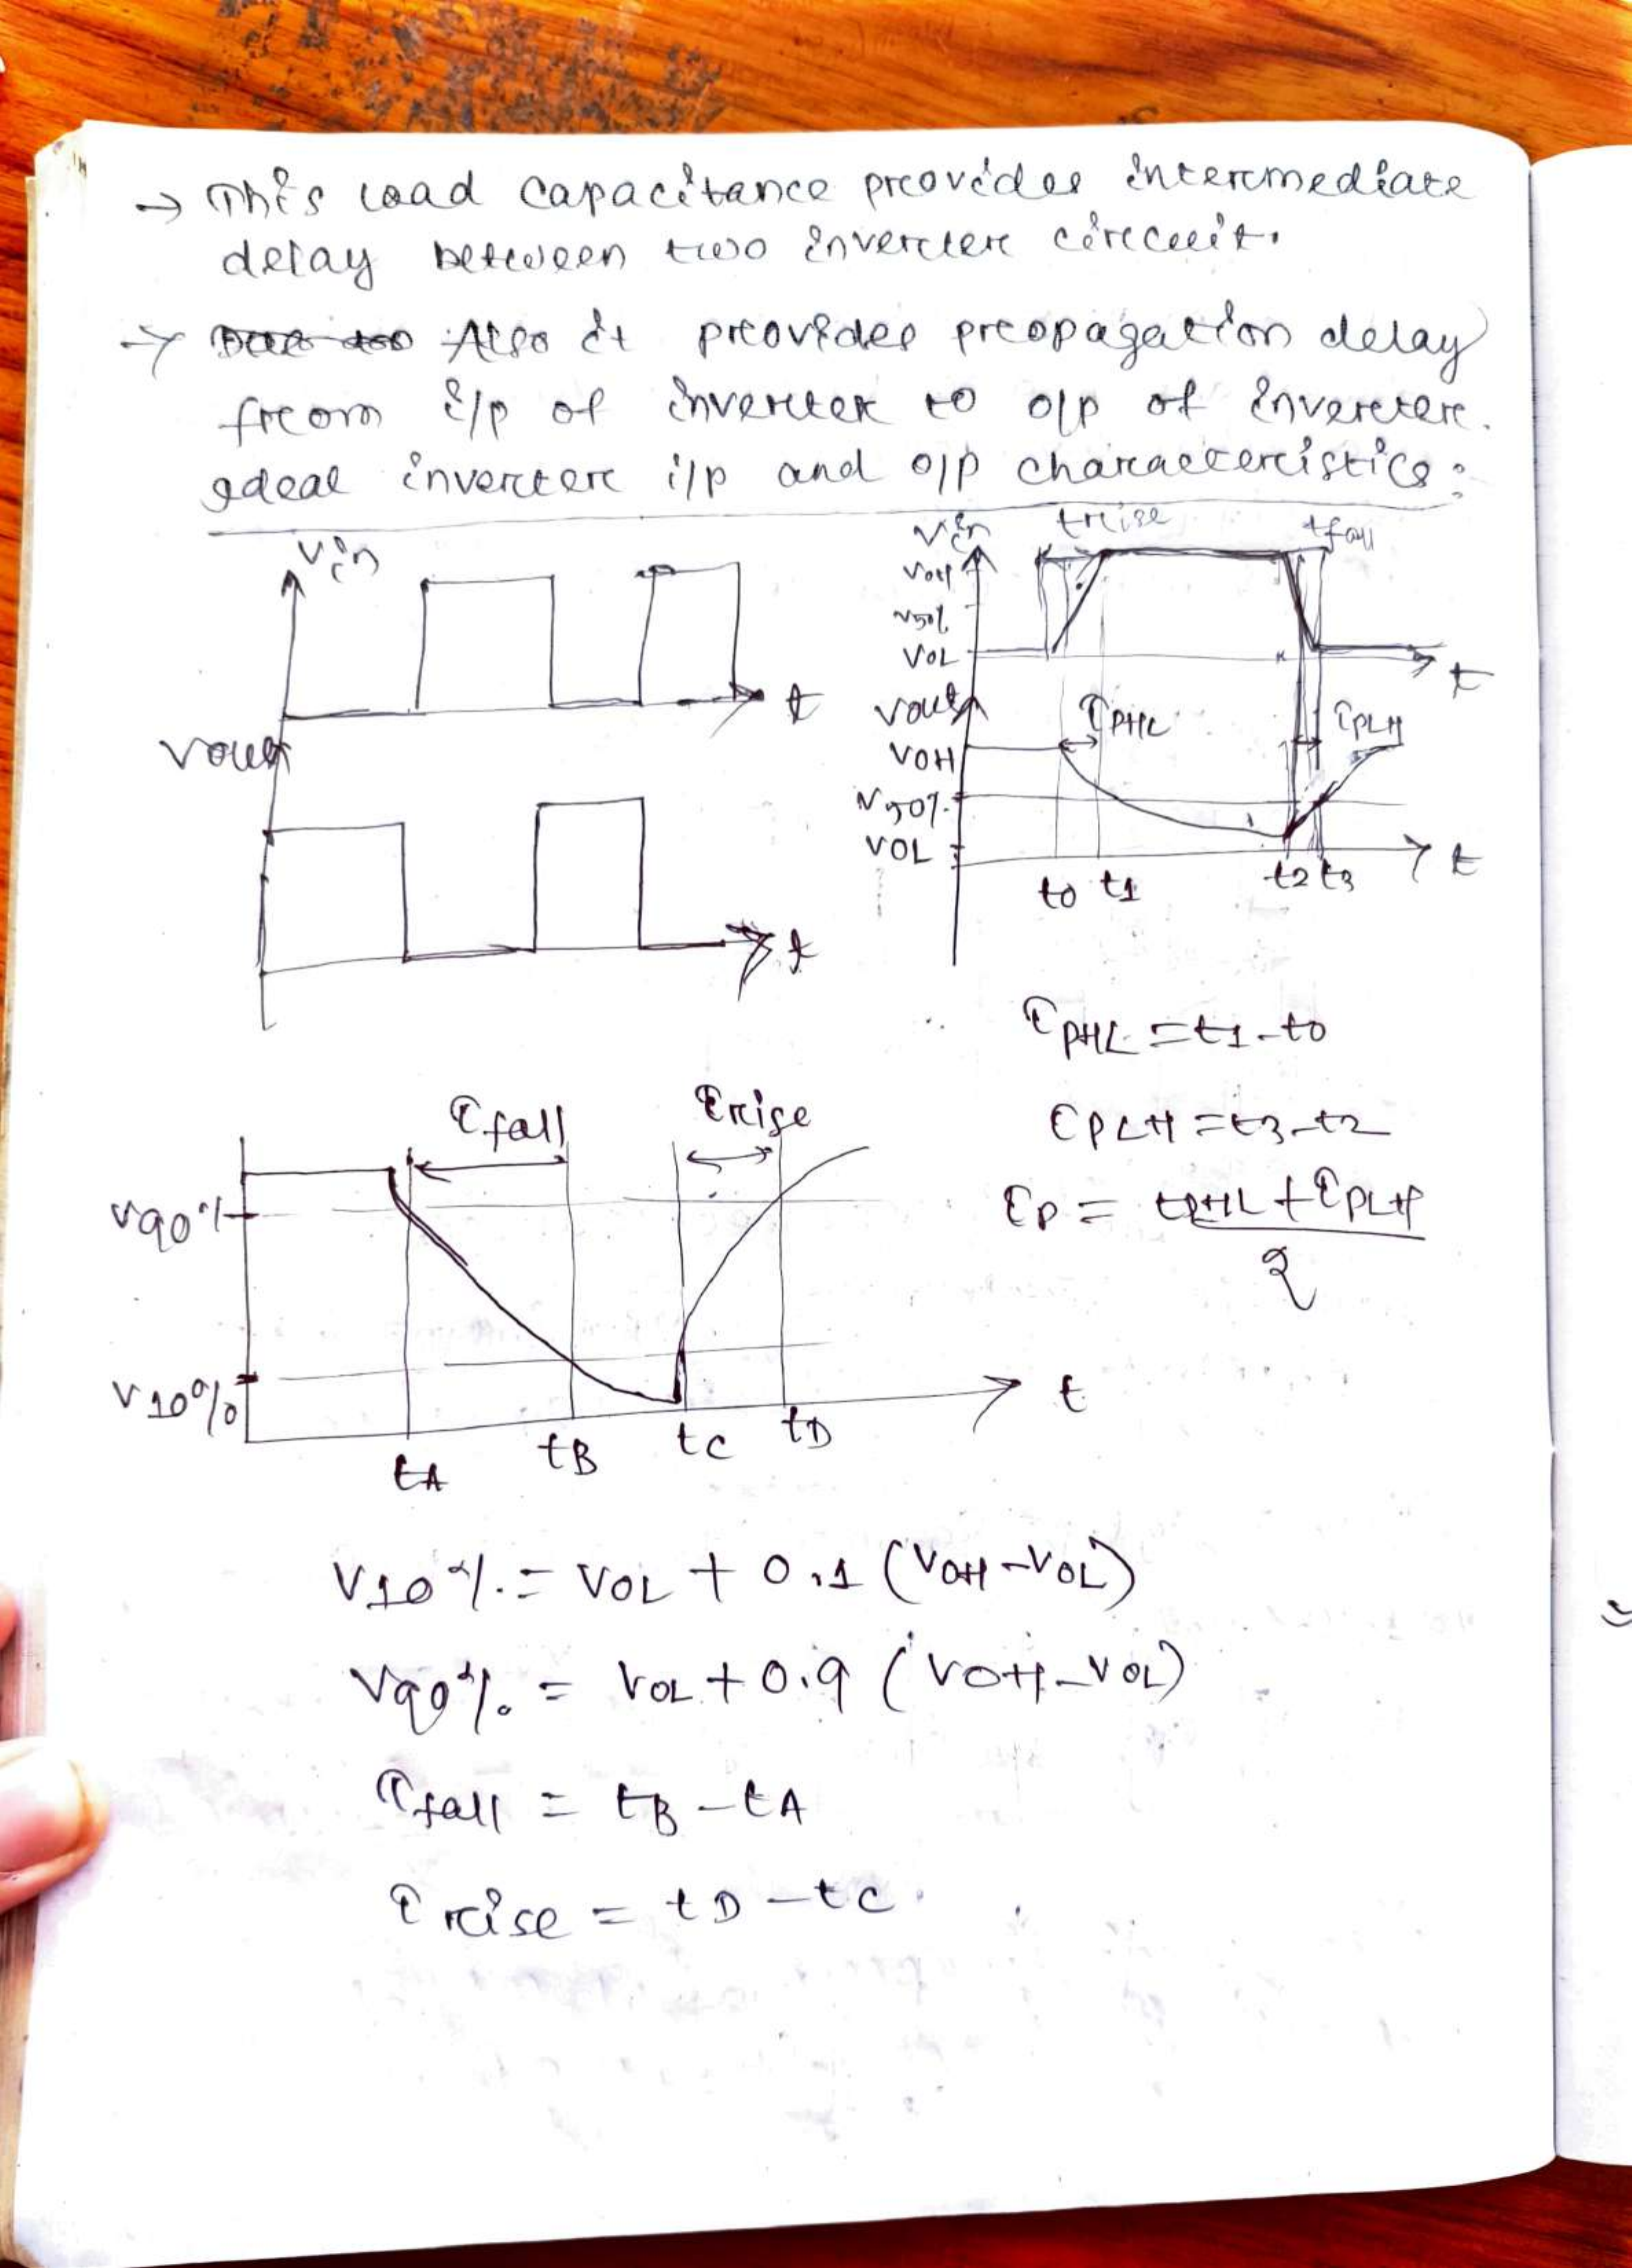 → This load capacitance provides intermediate
delay between two inverter circuit.
→ Also it provides propagation delay
from i/p of inverter to o/p of inverter.
Ideal inverter i/p and o/p characteristics:
Vin
t
Vout
t
Vin
trise
tfall
VOH
V50%
VOL
t
Vout
τPHL
τPLH
VOH
V50%
VOL
t0 t1
t2 t3
t
τPHL = t1-t0
τPLH = t3-t2
τP = tPHL + τPLH
2
τfall
τrise
V90%
V10%
tA
tB
tC
tD
t
V10% = VOL + 0.1 (VOH - VOL)
V90% = VOL + 0.9 (VOH - VOL)
τfall = tB - tA
τrise = tD - tC